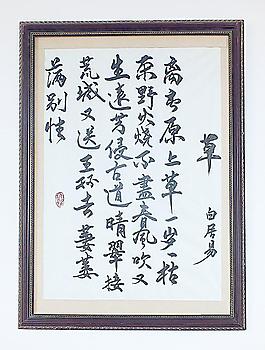 草
白居易
離离原上草一岁一枯
荣野火燒不盡春風吹又
生遠芳侵古道晴翠接
荒城又送王孫去萋萋
滿别情